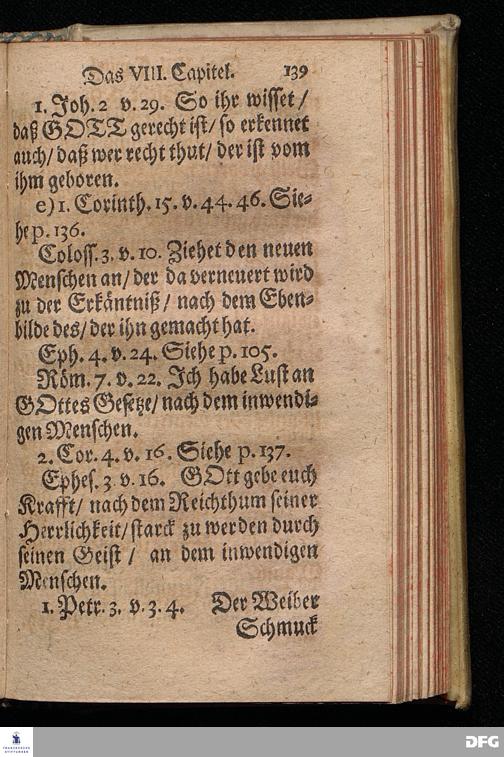 Das VIII. Capitel. 139
1. Joh. 2 v. 29. So ihr wisset /
daß GOTT gerecht ist / so erkennet
auch / daß wer recht thut / der ist vom
ihm geboren.
e) 1. Corinth. 15. v. 44. 46. Sie-
he p. 136.
Coloss. 3. v. 10. Ziehet den neuen
Menschen an / der da verneuert wird
zu der Erkäntniß / nach dem Eben-
bilde des / der ihn gemacht hat.
Eph. 4. v. 24. Siehe p. 105.
Röm. 7. v. 22. Ich habe Lust an
GOttes Gesetze / nach dem inwendi-
gen Menschen.
2. Cor. 4. v. 16. Siehe p. 137.
Ephes. 3. v. 16. GOtt gebe euch
Krafft / nach dem Reichthum seiner
Herrlichkeit / starck zu werden durch
seinen Geist / an dem inwendigen
Menschen.
1. Petr. 3. v. 3. 4. Der Weiber
Schmuck
FRANCKESCHE
STIFTUNGEN
DFG